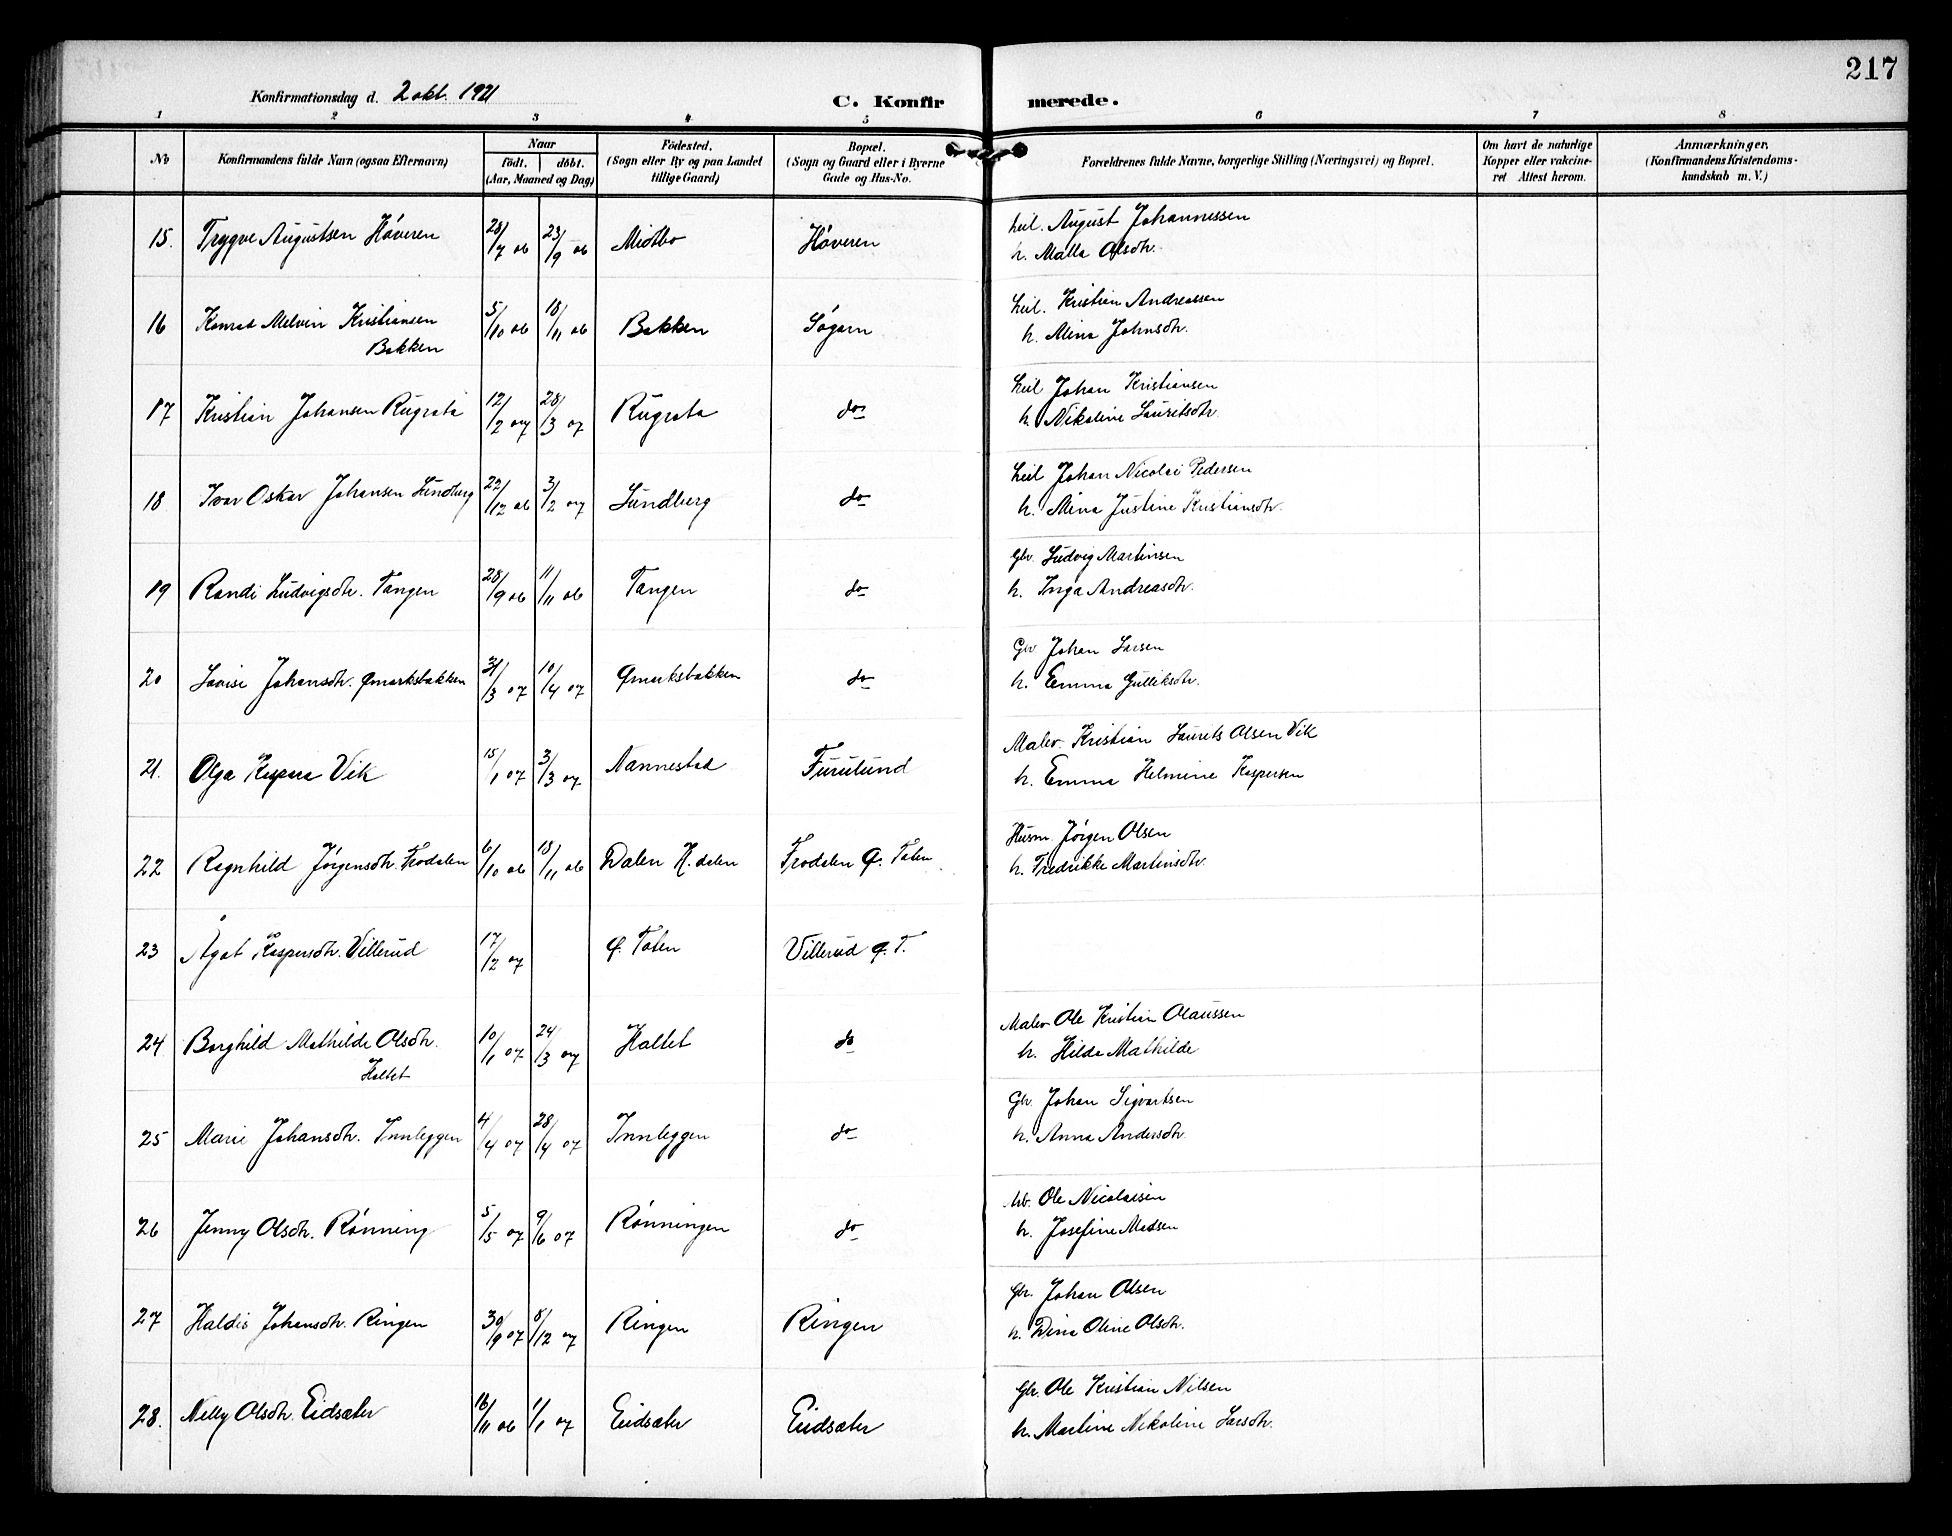 217
Konfirmationsdag d. 2 okt. 1921
C. Konfir merede.
1 2 3 4 5 6 7 8
No
Konfirmandens fulde Navn (ogsaa Efternavn)
Naar
födt. döbt.
(Aar, Maaned og Dag)
Födested.
(Sogn eller By og paa Landet
tillige Gaard)
Bopæl.
(Sogn og Gaard eller i Byerne
Gade og Hus-No.
Forældrenes fulde Navne, borgerlige Stilling (Næringsvei) og Bopæl.
Om havt de naturlige
Kopper eller vakcine-
ret Attest herom.
Anmærkninger,
(Konfirmandens Kristendoms-
kundskab m. V.)
15. Trygve Augustsen Höveren 28/7 06 23/9 06 Midtbo Höveren leil. August Johannessen
h. Malla Olsdtr.
16 Konrad Melvin Kristiansen 5/10 06 18/11 06 Bakken Sögarn Leil. Kristian Andreassen
Bakken h. Mina Johnsdtr.
17 Kristian Johansen Rugsta 12/2 07 28/3 07 Rugsta do Leil Johan Kristiansen
h. Nikoline Lauritsdtr.
18 Ivar Oskar Johansen Lundberg 22/12 06 3/2 07 Lundberg do Leil Johan Nicolai Pedersen
h. Mina Justine Kristiansdtr.
19 Randi Ludvigsdtr. Tangen 28/9 06 11/11 06 Tangen do Gbr. Ludvig Martinsen
h. Inga Andreasdtr.
20 Lovise Johansdtr. Ømarksbakken 31/3 07 10/4 07 Ømarksbakken do Gbr Johan Larsen
h. Emma Gulliksdtr.
21. Olga Kaspara Vik 15/1 07 3/3 07 Nannestad Furulund Maler. Kristian Laurits Olsen Vik
h. Emma Helmine Kaspersen
22 Ragnhild Jörgensdtr. Frodalen 6/10 06 18/11 06 Dalen H.dalen Frodalen Ø. Toten Husm. Jörgen Olsen
h. Fredrikke Martinsdtr.
23 Ågot Kaspersdtr. Villerud 17/2 07 Ø. Toten Villerud Ø. T.
24 Borghild Mathilde Olsdtr. 10/1 07 24/3 07 Haltet do Maler Ole Kristian Olaussen
Haltet h. Hilda Mathilde
25 Marie Johansdtr. Innleggen 4/4 07 28/4 07 Innleggen do Gbr. Johan Sigvartsen
h. Anna Andersdtr.
26 Jenny Olsdtr. Rönning 5/5 07 9/6 07 Rönningen do Ole Nicolaisen
h. Josefine Madsen
27 Haldis Johansdtr. Ringen 30/9 07 8/12 07 Ringen Ringen Gbr. Johan Olsen
h. Dina Oline Olsdtr.
28. Nelly Olsdtr. Eidsæter 16/11 06 1/1 07 Eidsæter Eidsæter Gbr. Ole Kristian Nilsen
h. Martine Nikoline Larsdtr.